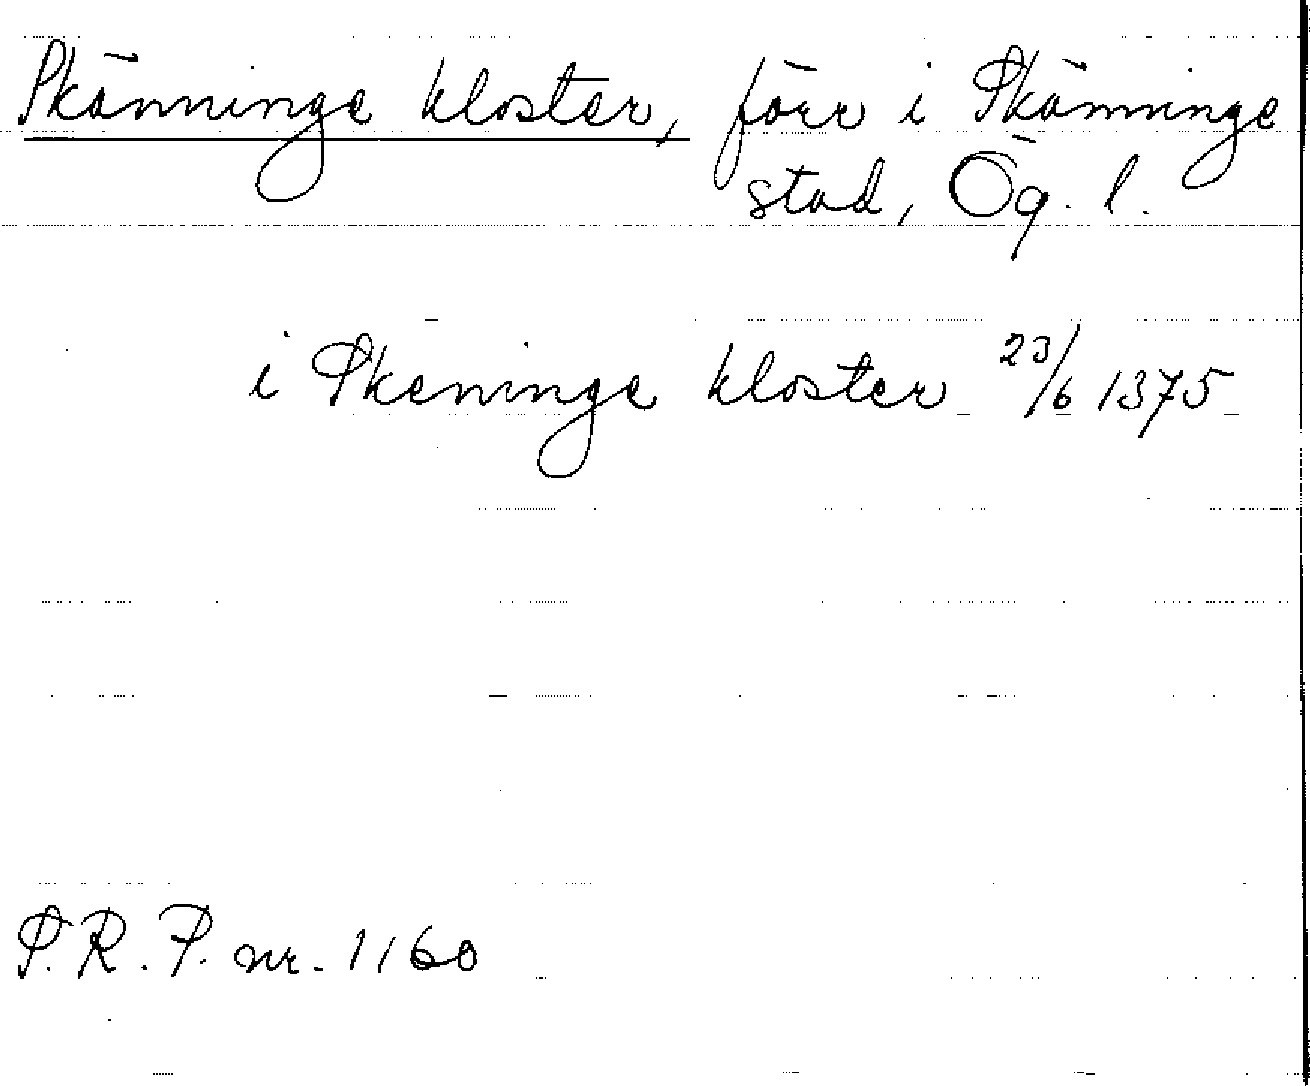 Skänninge kloster, förr i Skänninge
stad, Ög. l.
i Skeninge kloster 23/6 1375
S.R.P. nr. 1160